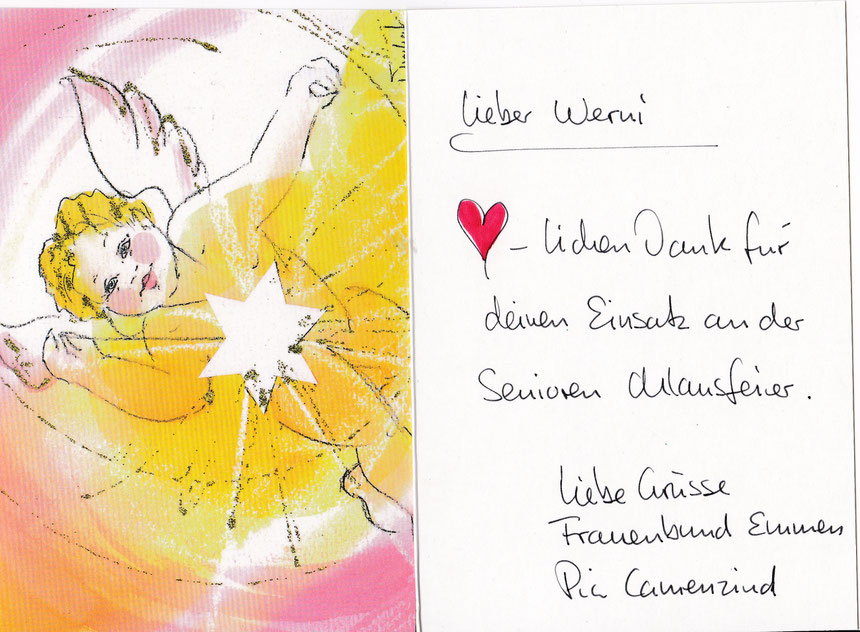 Lieber Werni
♥-lichen Dank für
deinen Einsatz an der
Senioren Chlausfeier.
Liebe Grüsse
Frauenbund Emmen
Pia Camenzind